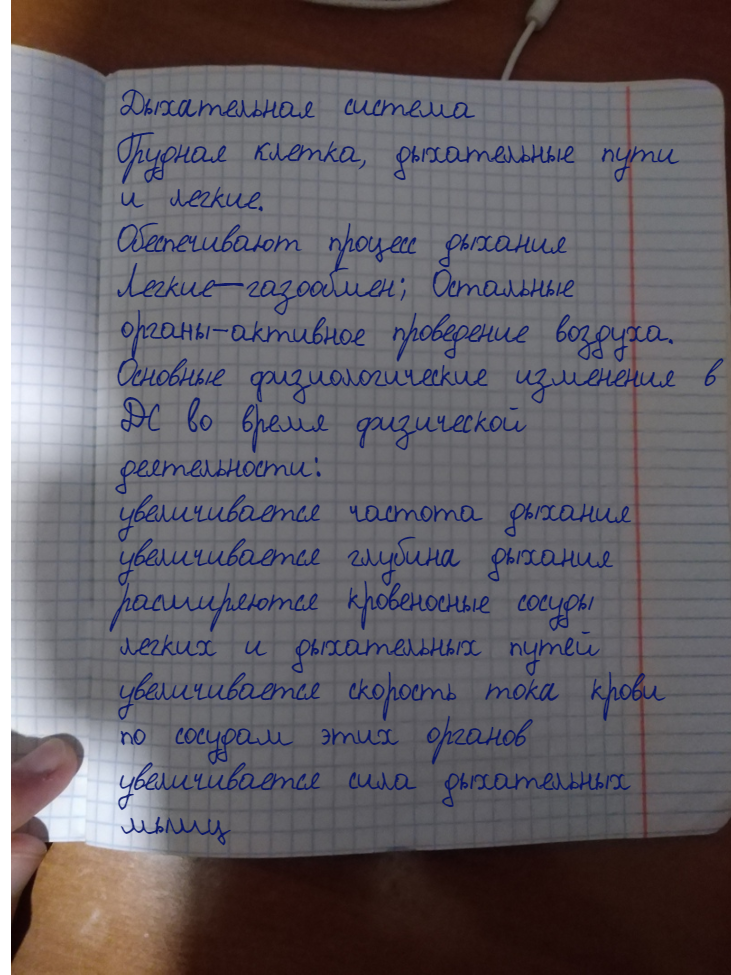 Дыхательная система
Грудная клетка, дыхательные пути
и легкие.
Обеспечивают процесс дыхания
Легкие—газообмен; Остальные
органы-активное проведение воздуха.
Основные физиологические изменения в
ДС во время физической
деятельности:
увеличивается частота дыхания
увеличивается глубина дыхания
расширяются кровеносные сосуды
легких и дыхательных путей
увеличивается скорость тока крови
по сосудам этих органов
увеличивается сила дыхательных
мышц